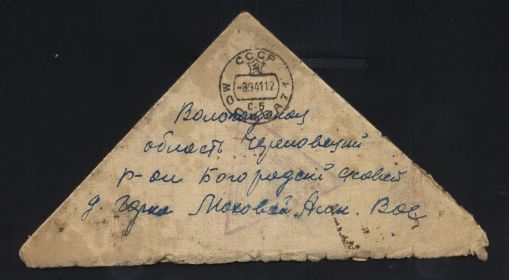 СССР
-8941 12
Вологодская
область Череповецкий
р-он Богородский
д. Горка Моховой Анн. Вас